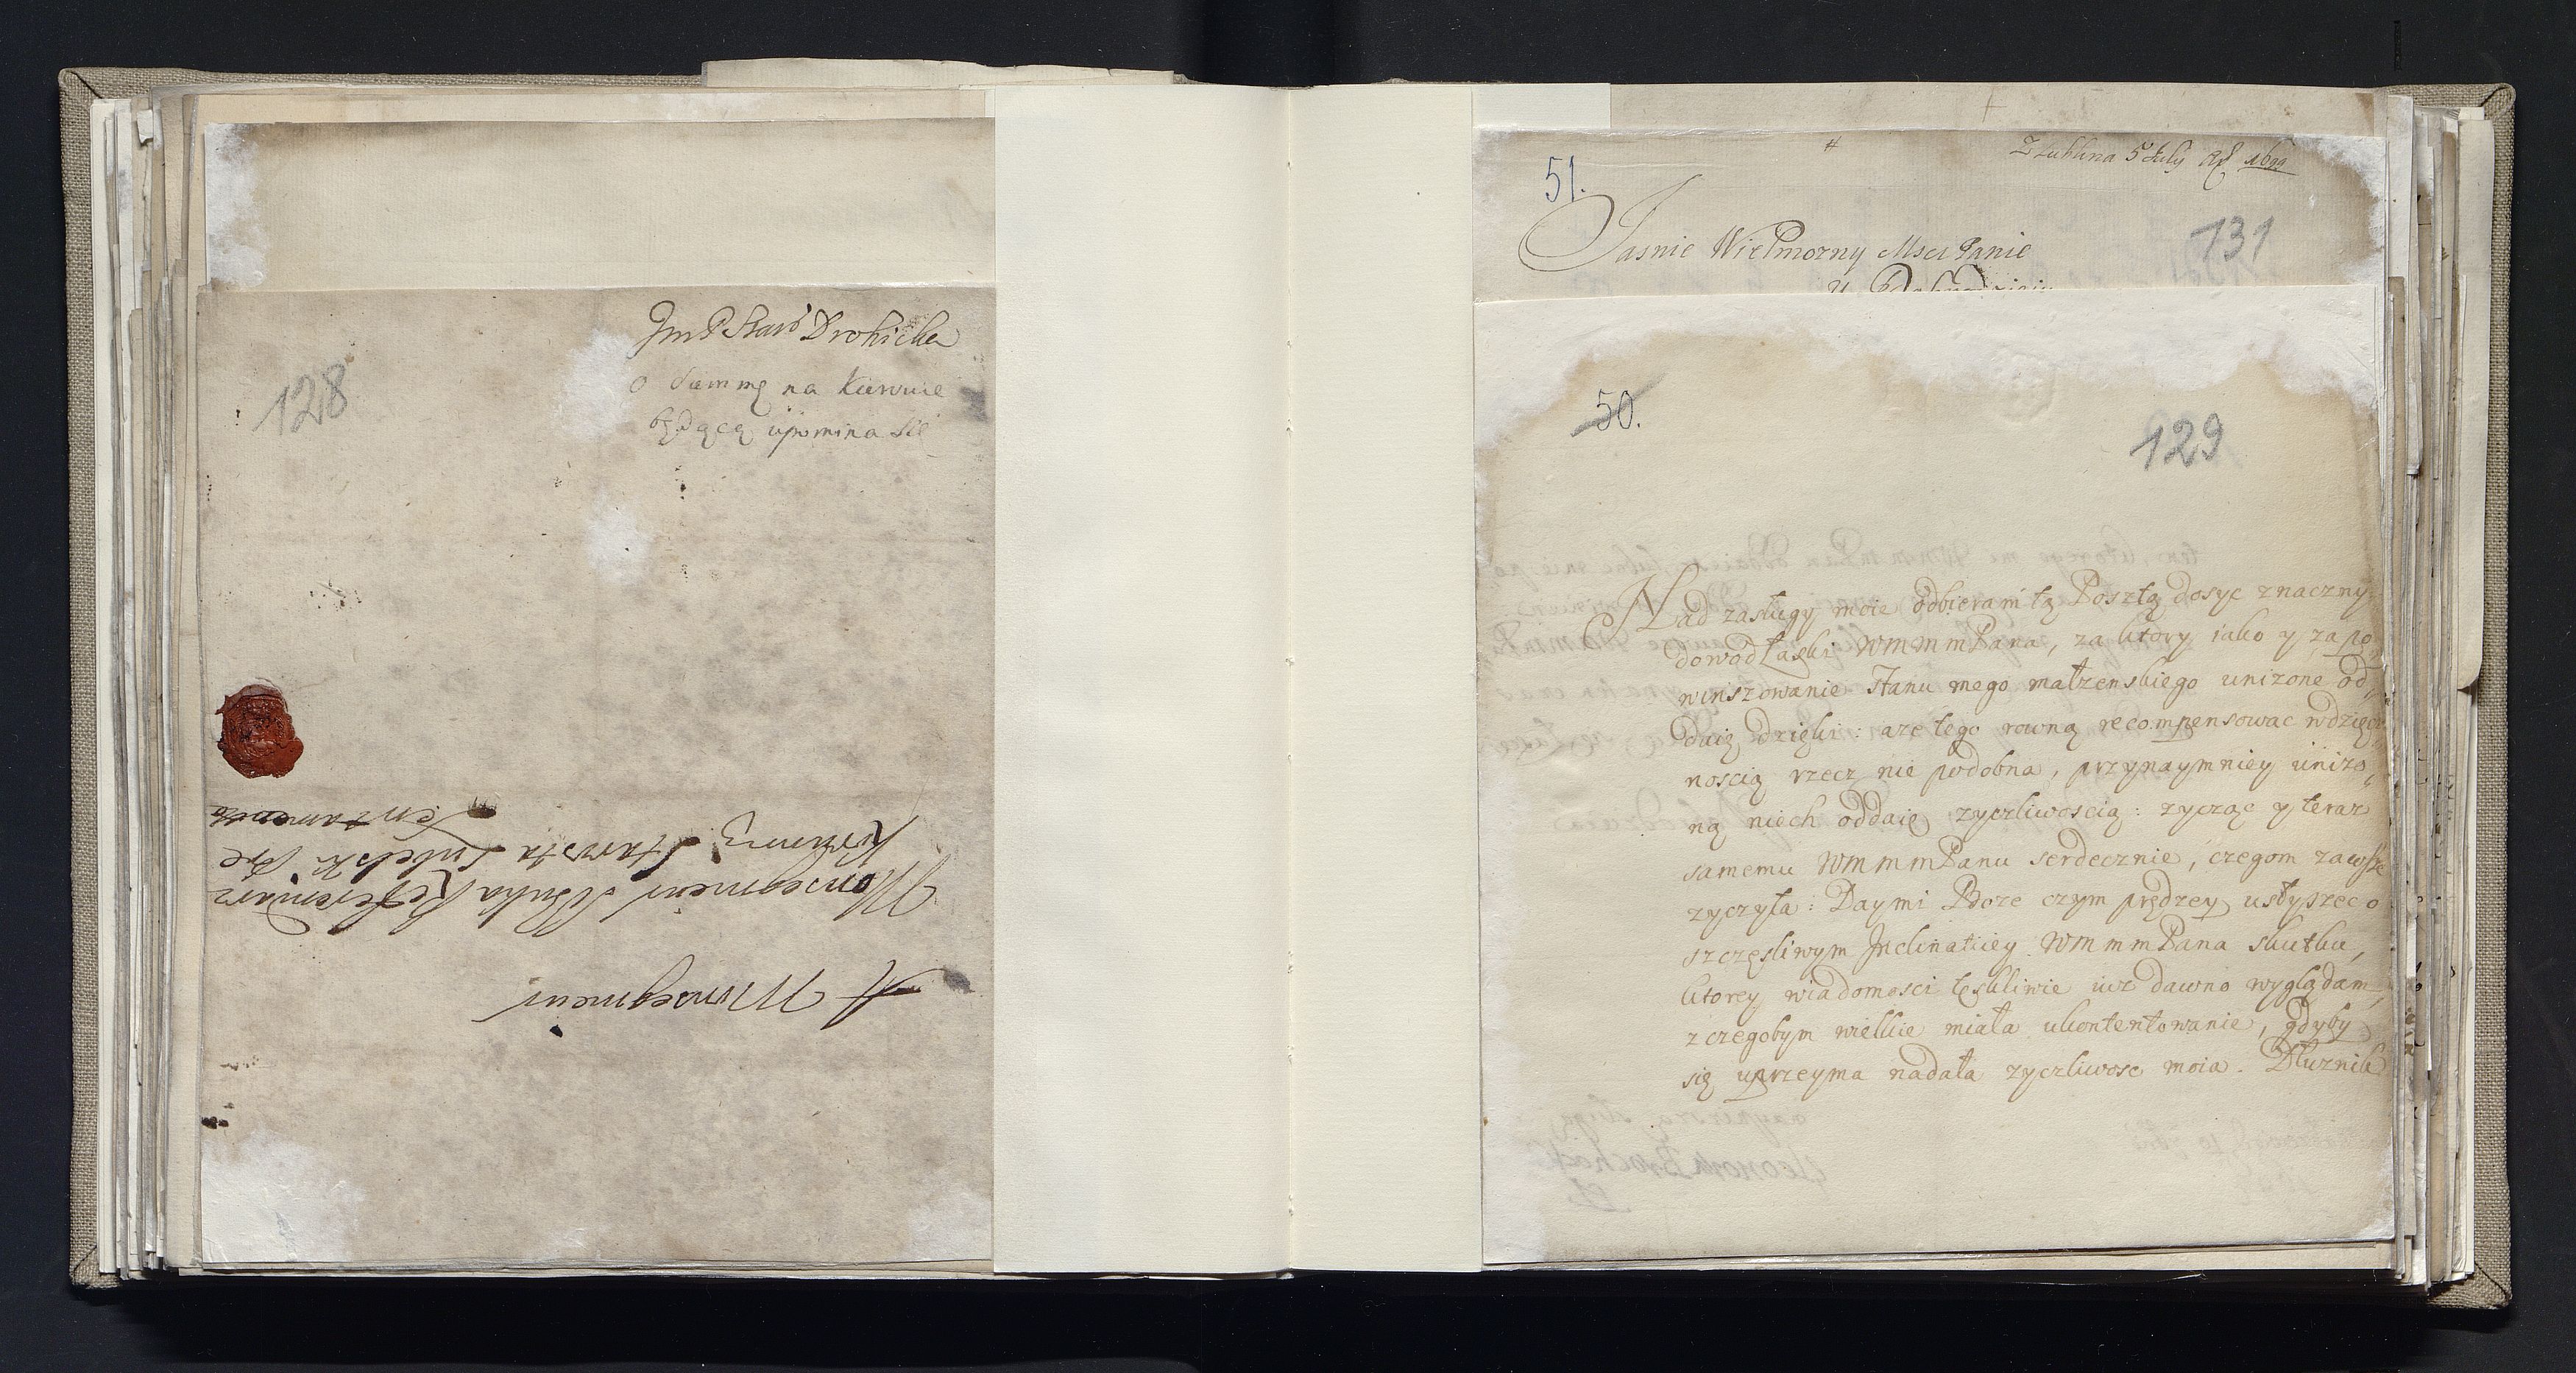 128
JmP Star Drohicka
o Summę na Kiiewie
będącą upomina się
A Monsegnieur
Monsegnieur Szczuka Refferendarz
Koronny Starosta Lubelsk
51.
Z Lublina 5 July Ao 1699
131
Jasnie Wielmozny Msci Panie
50.
129
Nad zasługy moie odbieram tą Posztą dosyc znaczny
dowod Łaski WMMMPana, za ktory iako y za po„
winszowanie Stanu mego małzenskiego unizone od„
daię dzięki: aze tego rowną recompensowac wdzięcz„
noscią rzecz nie podobna, przynaymniey unizo„
ną niech oddaię zyczliwoscią: zycząc y teraz
samemu WMMMPanu serdecznie, czegom zawsze
zyczyła: Day mi Boze czym prędzey usłyszec o
szczęsliwym Inclinatiiey WMMMPana skutku,
ktorey wiadomosci teskliwie iuz dawno wyglądam,
z czegobym wielkie miała ukontentowanie, gdyby
się uprzeyma nadała zyczliwosc moia. Dłuznik